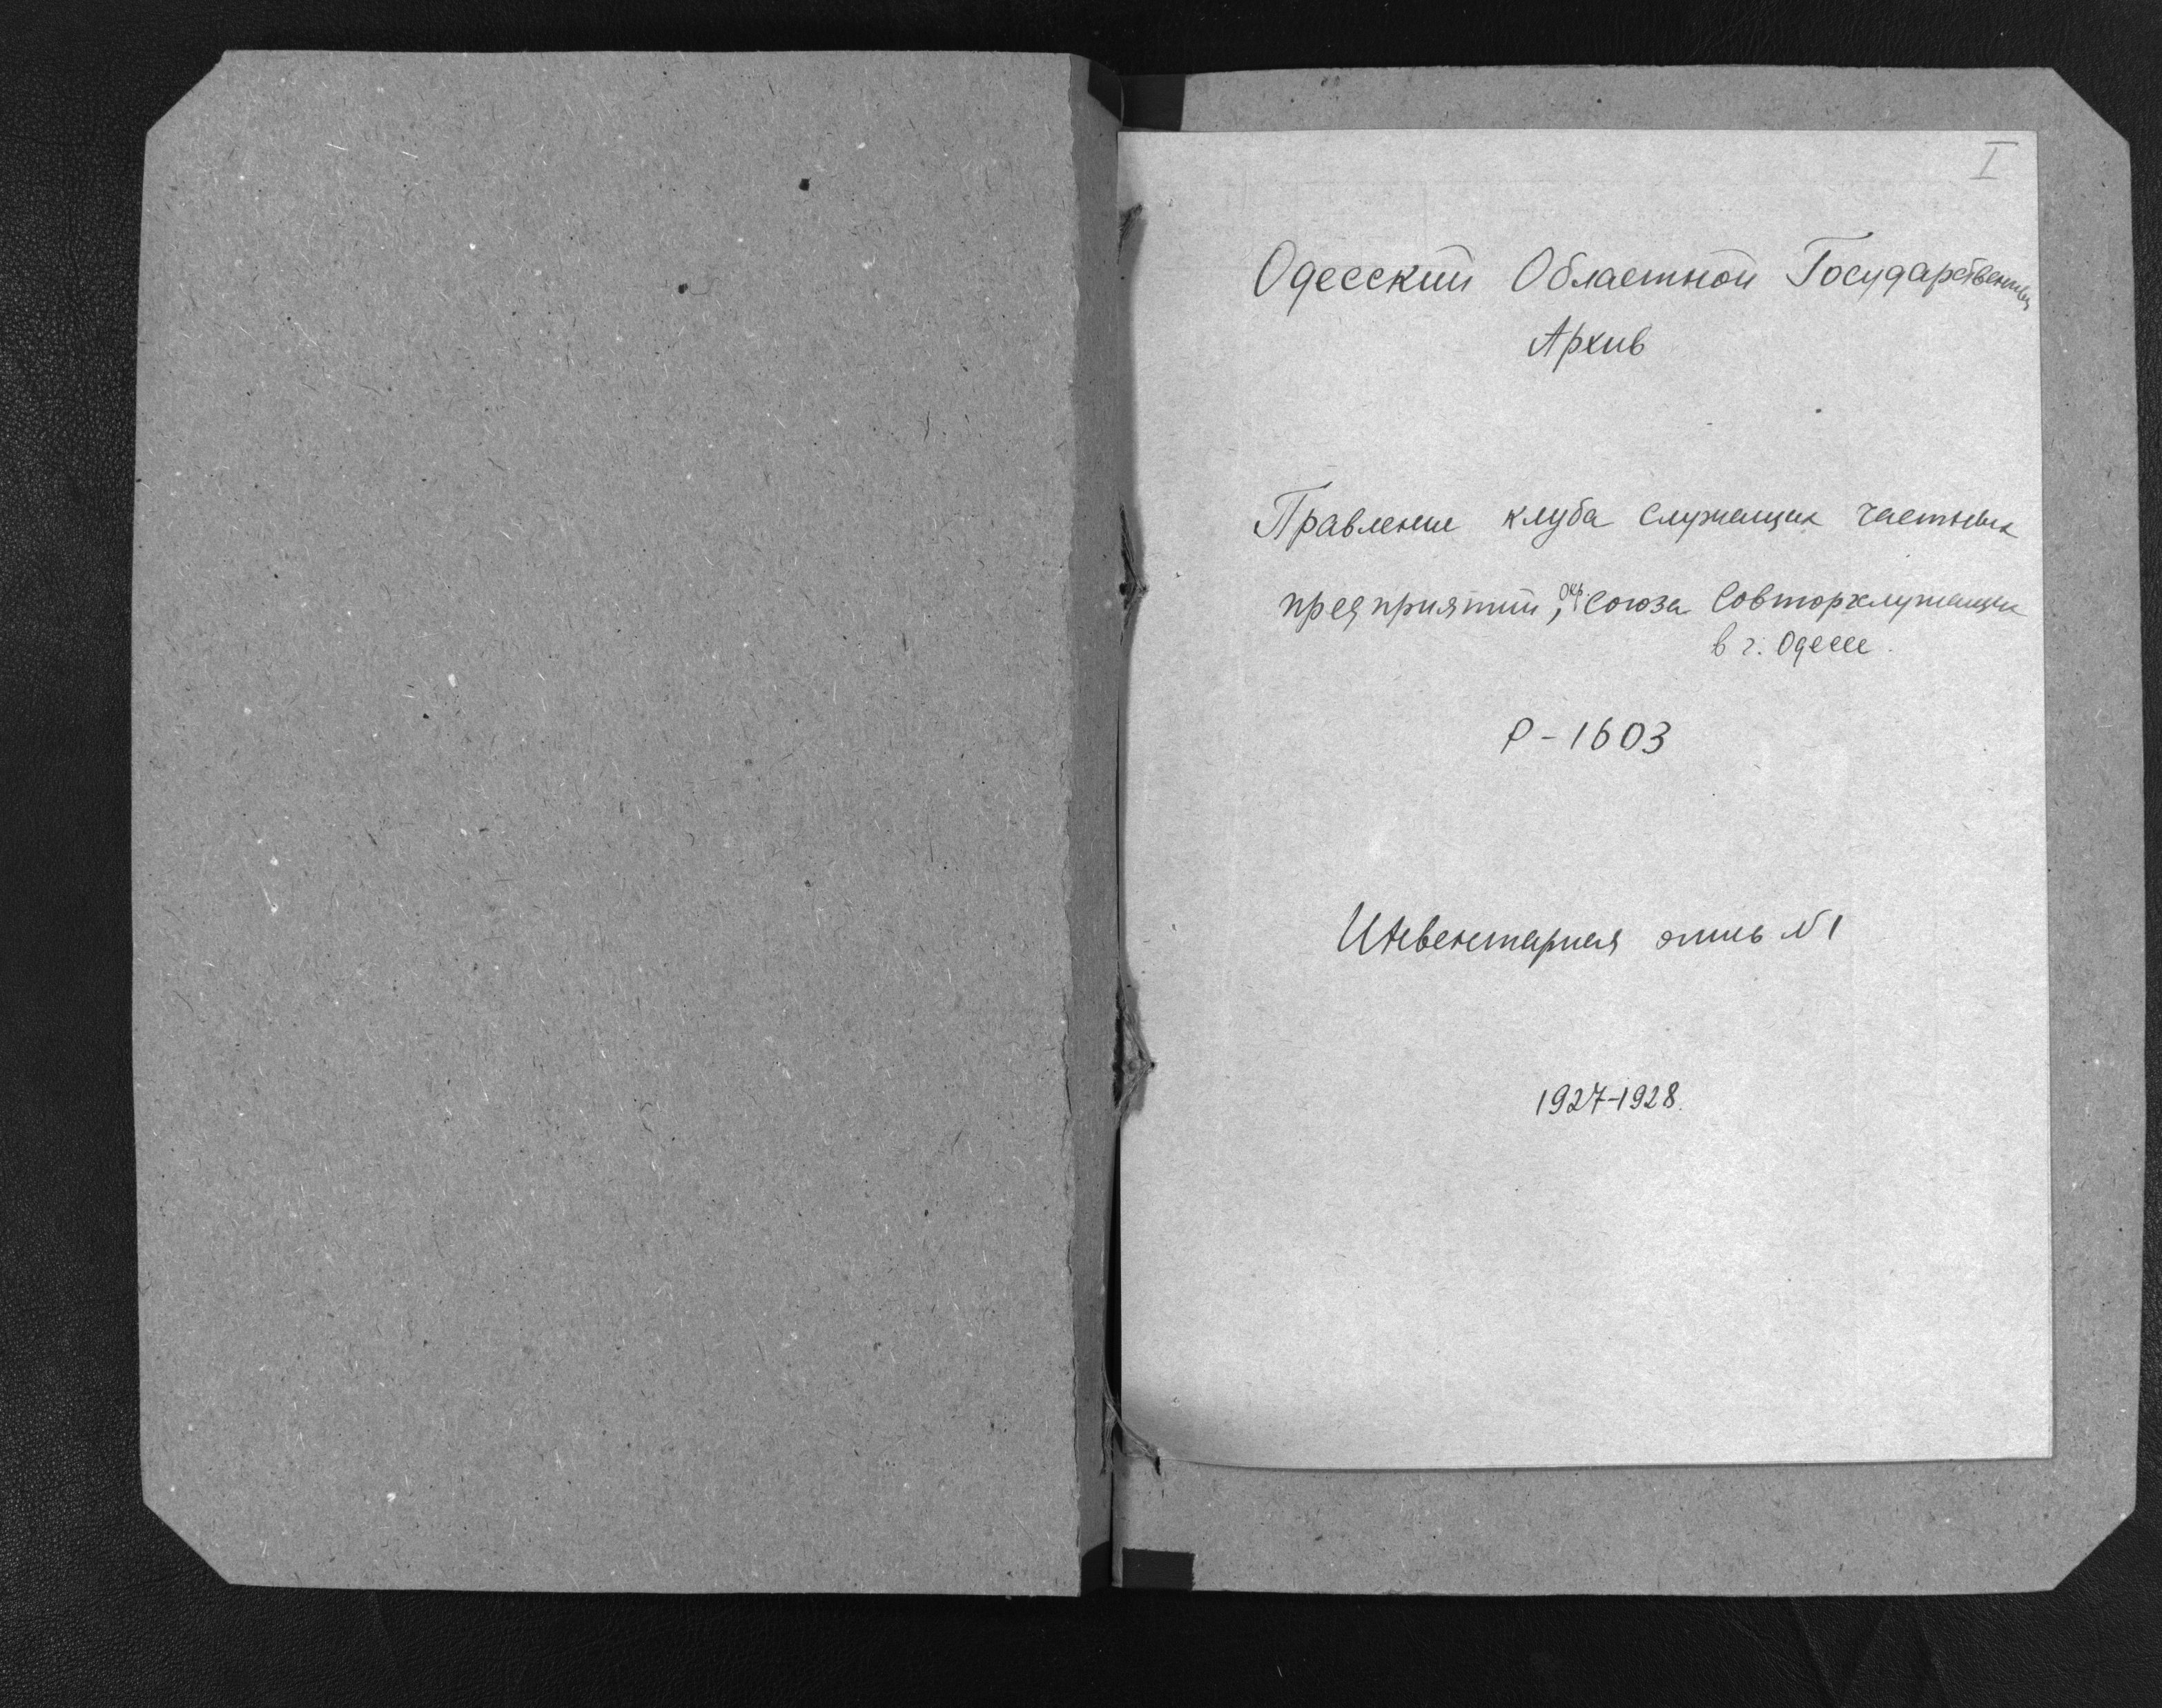 I
Одесский Областной Государственный
Архив
Правление клуба служащих частных
предприятий, окр. союза Совторгслужащих
в г. Одессе.
Р-1603
Инвентарная опись №1
1927-1928.